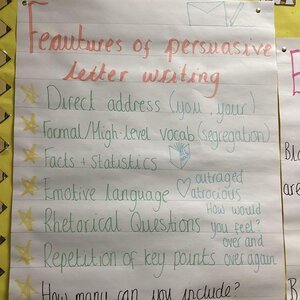 Feautures of persuasive
letter writing
Direct address (you, your)
Formal/High-level vocab (segregation)
Facts + Statistics
Emotive language outraged atrocious
Rhetorical Questions How would you feel?
Repetition of key points over and over again
How many can you include?
E
Bla
are
B